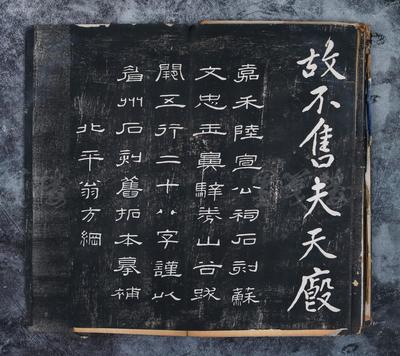 故不售夫天廄
嘉禾陸宣公祠石刻蘇
文忠玉鼻騂券山谷跋
闕五行二十八字謹以
眉州石刻舊拓本摹補
北平翁方綱